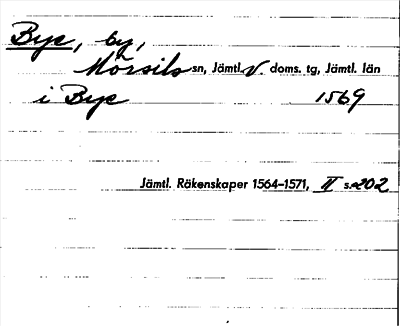 Bye, by,
Mörsils sn, Jämtl. V. doms. tg, Jämtl. län
i Bye 1569
Jämtl. Räkenskaper 1564-1571, II s. 202